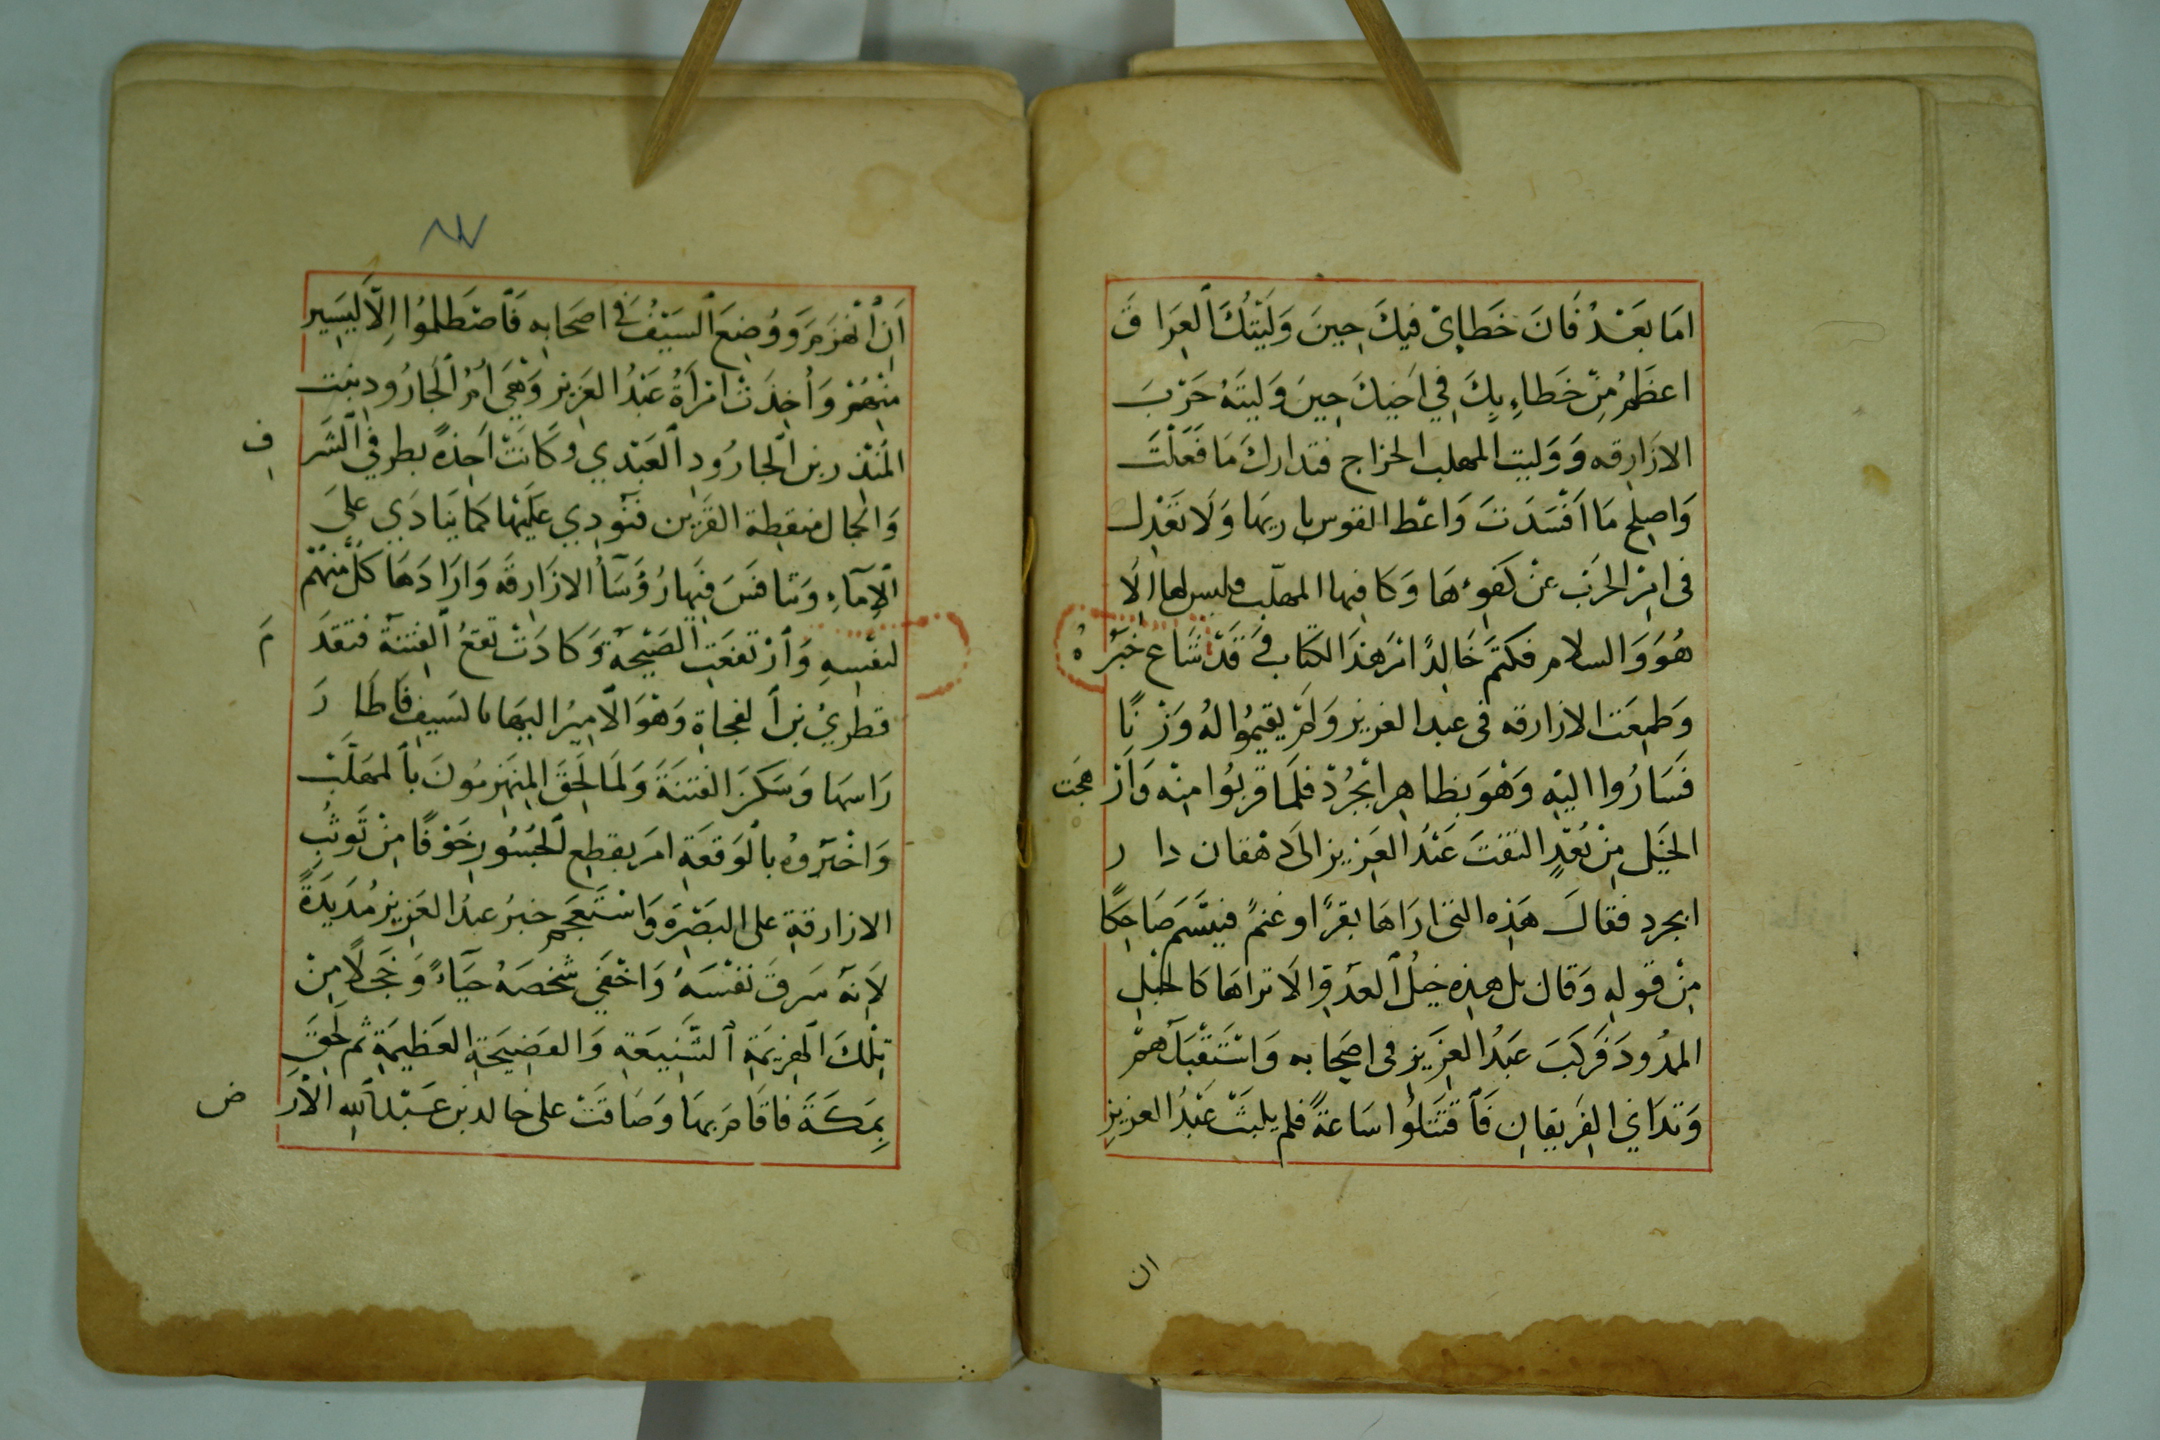 اما بَعْدُ فَانَ خَطاىْ فيكَ حِينَ وَلَيْتُكَ ٱلعِرَاقَ
اعظَمُ مِنْ خَطاءِيكَ فِي اَخيكَ حِينَ وَليتَهُ حَرْبَ
الازَارِقه وَوَليت المهلب الخراج فتدارك مَا فَعَلْتَ
وَاصِلح مَا اَفْسَدتَ وَاعْط القوس باريها وَلَا تَعْدِل
فى امْرِ الحَرْبِ عنْ كفوءهَا وَكافيها المهلّب فليس لها اِلَا
هُوَ وَالسلام فكتمَ خَالِدًا امْرَ هَذَا الكتاب وَقَدْ شَاع خبَرُهُ
وَطمِعَت الازارقه فى عبد العزيز وَلَمْ يقيمُوا لهُ وَزْنًا
فَسَارُوا اليْهِ وَهْوَ بظاهِر ابْجُرْد فلَمَا قربُوا مِنْه وَاَزْهجَت
الخَيْل مِنْ بُعْدٍ التفتَ عَبْدُ العَزِيز الَى دهْقان دار
ابجرد فقالَ هَذِه التى ارَاهَا بقرًا او غنمً فتبَسَّمَ ضَاحِكًا
مِنْ قولِهِ وَقَال بل هذِه خَيْلُ ٱلعدَوِّ الَا تراهَا كالحبْلِ
المدُودَ فَركبَ عَبْدُ العَزِيز فى اصْحابه وَاسْتَقْبَلَهمْ
وَتدَانى الفَرِيقان فَٱقتَتَلُوا سَاعةً فلم يلبَثْ عَبْدُ العزيزِ
ان
٦٧
اَنِ ٱنْهَزَمَ وَوُضِعَ ٱلسَيْفُ فى اصحَابِه فَٱصْطَلمُوا اِلّاَ ليَسِير
مِنْهُمْ وَاُخِذَتْ امْرَأَةُ عَبْدُ العَزِيز وَهْيَ امُ ٱلجَارُود بنت
المنْذِر بن ٱلجارُودِ ٱلعَبْدِي وَكَانَتْ اَخِذةً بطرفي ٱلشَرفِ
وَالجمال منقطِعة القَرِين فنُودِي عَلَيْهَا كمَا يُنادَي عليَ
ٱلاِمَآءِ وَتنافَسَ فِيها رُؤَسَآُ الازَارِقَه وَارَادَهَا كلٌّ مِنْهُمْ
لنفْسِهِ وَٱرْتفعَت ٱلصَيْحَة وَكادَتْ تقعُ ٱلفتنَةُ فتقدَمَ
قطرِيُ بن ٱلفجاةِ وَهْوَ ٱلامِيرُ اليها بالسَيفِ فَاَطَارَ
رَاسهَا وَسَكَنَ الفتنَةَ وَلَمَا لَحِقَ المنهَزِمُونَ بٱلمهَلَّبْ
وَاخْبَرُوهُ بالوَقعَةِ امَر بقطِع ٱلجُسُورِ خَوْفًا مِنْ تَوَثُبِ
الازارقة على البَصْرَة وَاسْتَعجَم خبرُ عبدُ العَزِيز مُدَيدَةً
لَاِنهَ سَرقَ نفْسَهُ وَاخْفَي شخصَهُ حيَاءً وَخَجَلًا مِنْ
تِلْكَ الهزِيمَةِ ٱلشَنِيعَةِ وَالفضِيحَةِ العَظِيمَةِ ثم لَحِقَ
بِمَكَةَ فاقَامَ بهَا وَضَاقتْ على خالد بن عَبْد ٱلله الاَرض